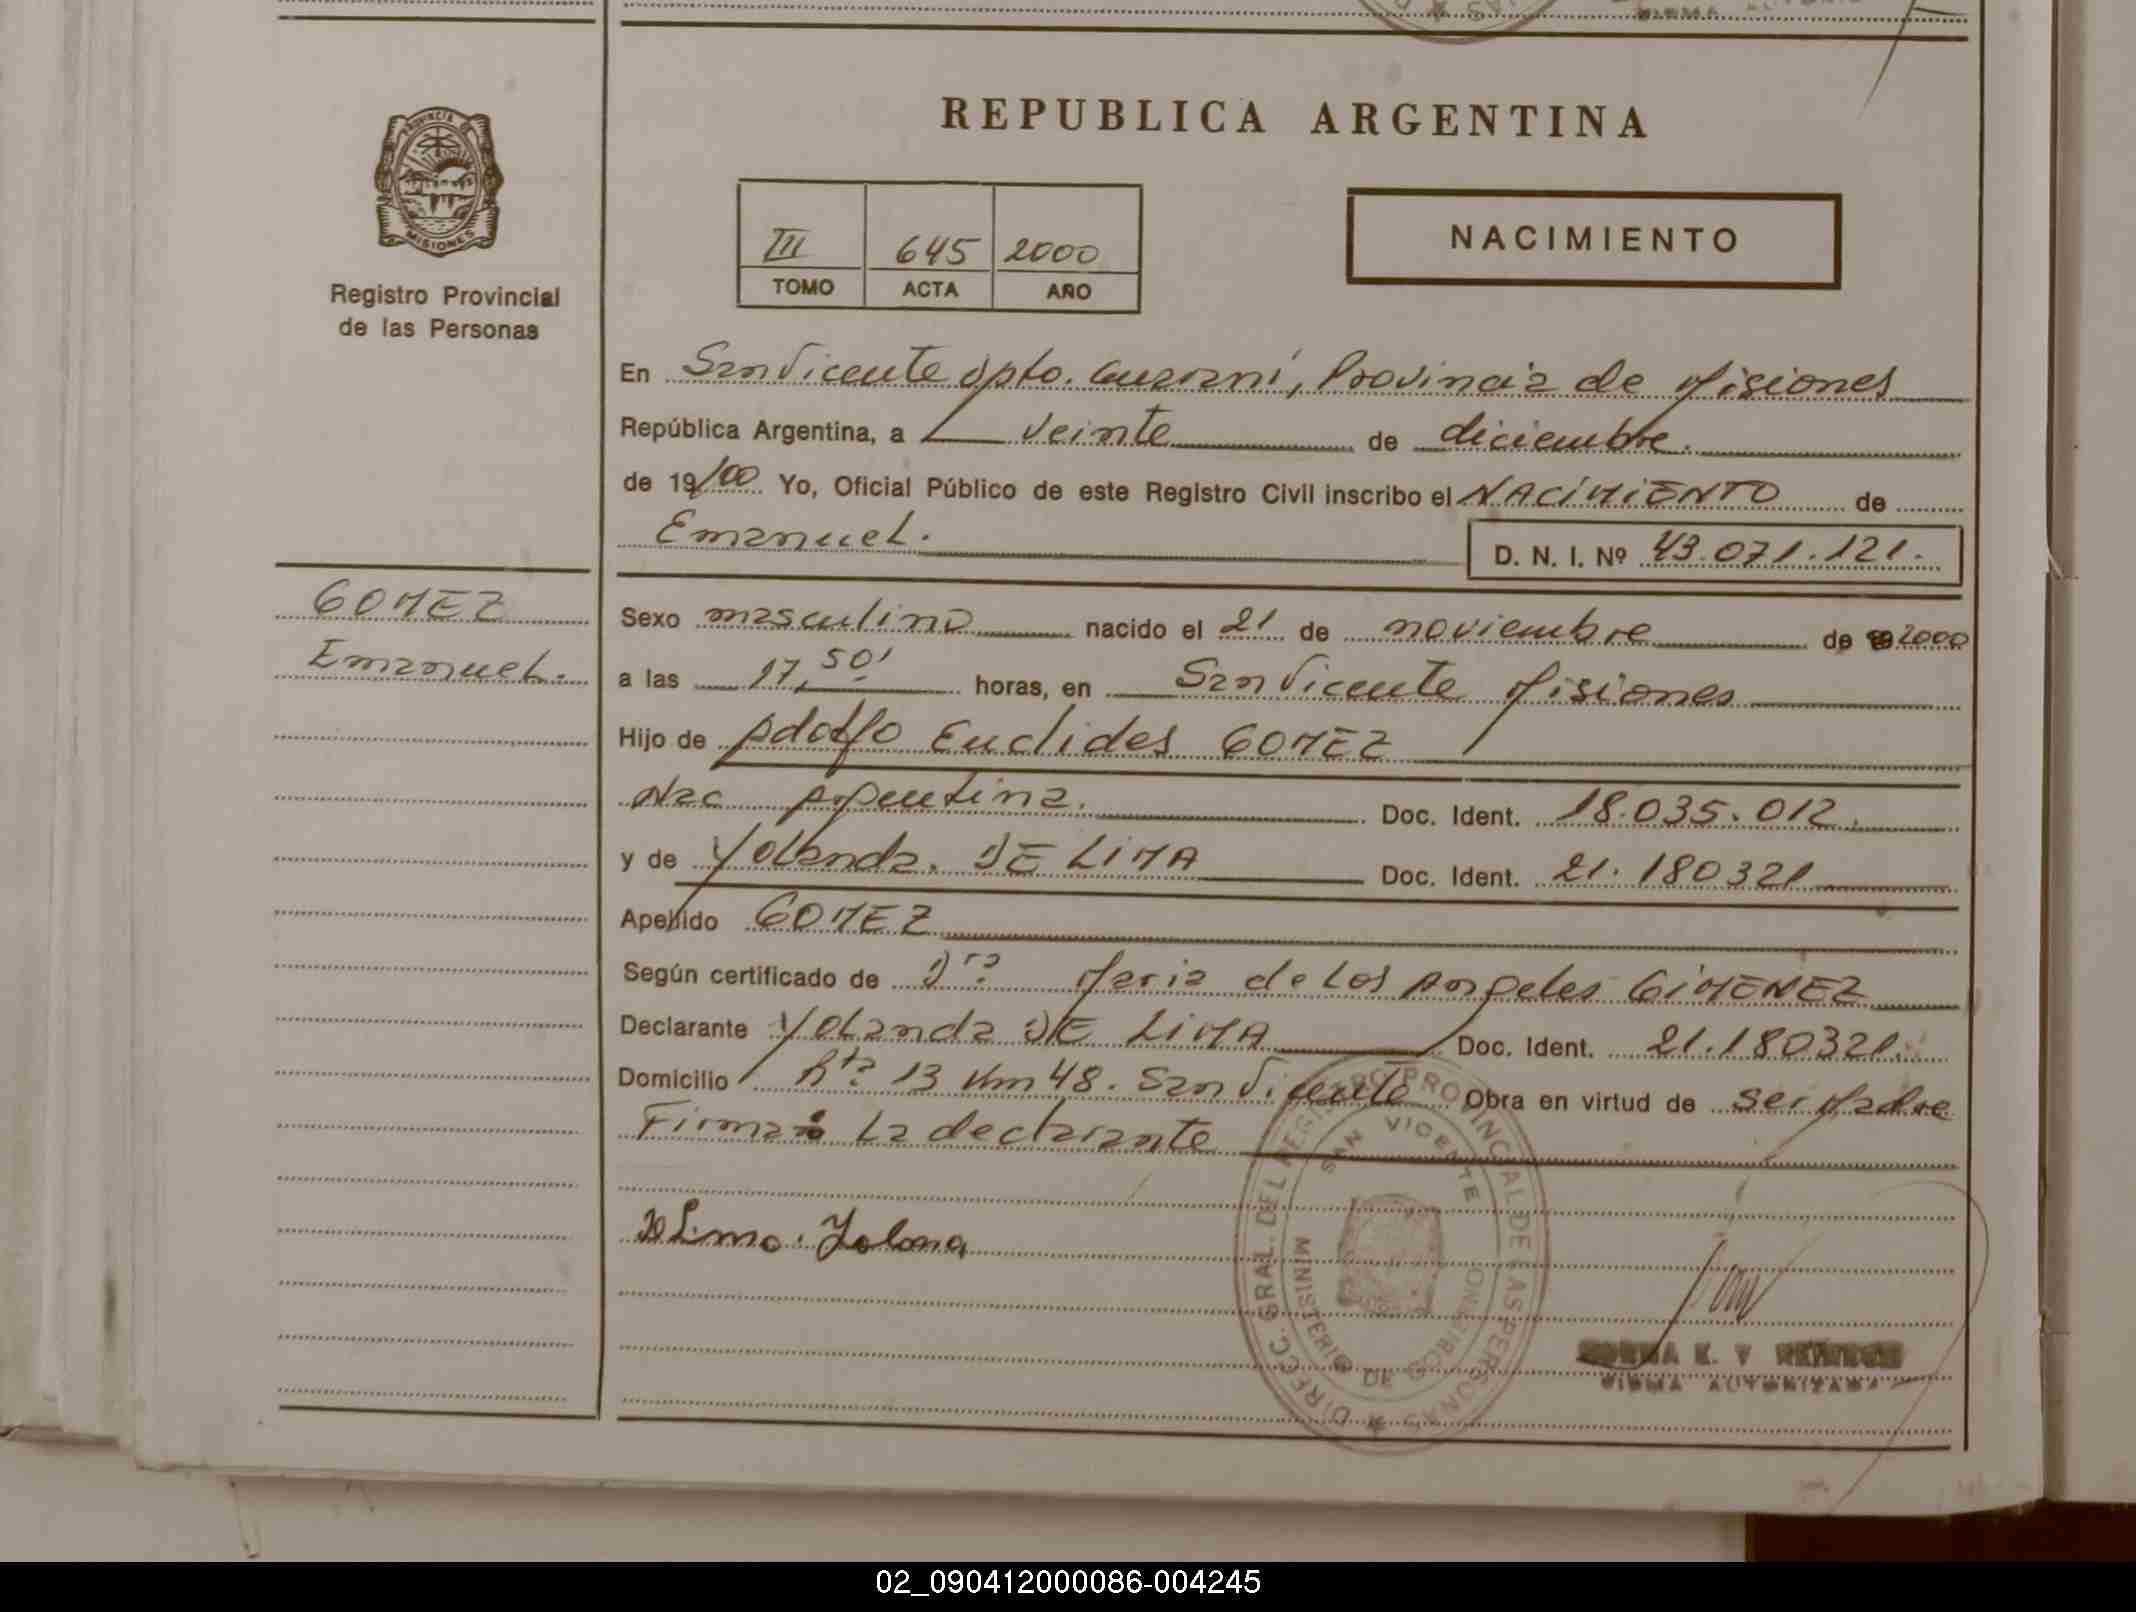 REPUBLICA ARGENTINA
PROVINCIA DE
MISIONES
Registro Provincial
de las Personas
III 645 2000
TOMO ACTA AÑO
NACIMIENTO
En San Vicente dpto. Guaraní, Provincia de Misiones
República Argentina, a veinte de diciembre.
de 19/00 Yo, Oficial Público de este Registro Civil inscribo el NACIMIENTO de
Emanuel.
D. N. I. Nº 43.071.121.
GOMEZ
Emanuel.
Sexo masculino nacido el 21 de noviembre de 2000
a las 17,50' horas, en San Vicente Misiones
Hijo de Adolfo Euclides GOMEZ
Nac Argentina. Doc. Ident. 18.035.012.
y de Yolanda. DE LIMA Doc. Ident. 21.180321
Apellido GOMEZ
Según certificado de Dra. Maria de Los Angeles GIMENEZ
Declarante Yolanda DE LIMA Doc. Ident. 21.180321.
Domicilio Rta. 13 Km 48. San Vicente Obra en virtud de ser Madre
Firma La declarante
DIRECC. GRAL. DEL REGISTRO PROVINCIAL DE LAS PERSONAS
SAN VICENTE
MINISTERIO DE GOBIERNO
FIRMA AUTORIZADA
02_090412000086-004245